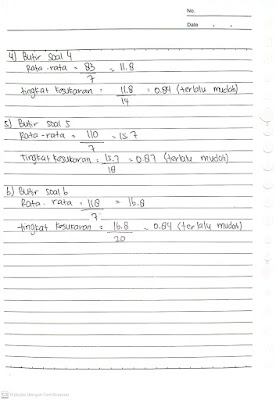 No.
Date
4) Butir Soal 4
Rata-rata = 83/7 = 11.8
tingkat kesukaran = 11.8/14 = 0.84 (terlalu mudah)
5) Butir Soal 5
Rata-rata = 110/7 = 15.7
Tingkat kesukaran = 15.7/18 = 0.87 (terlalu mudah)
6) Butir Soal 6
Rata-rata = 118/7 = 16.8
tingkat kesukaran = 16.8/20 = 0.84 (terlalu mudah)
Dipindai dengan CamScanner